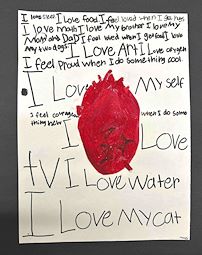 I love sleep I Love food I feel loved when I get hugs
I love math I love my brother I love My
Mom and Dad I feel loved when I get food I love
My two dogs I Love Art I Love oxygen
I feel Proud when I do something cool.
I Love My self
I feel courageous when I do some
thing new
I Love
tv I Love Water
I Love My cat